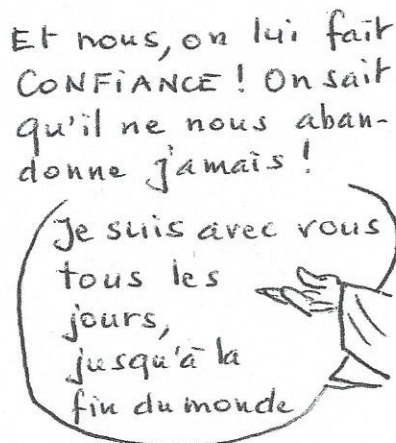 Et nous, on lui fait
CONFIANCE ! On sait
qu'il ne nous aban-
donne jamais !
Je suis avec vous
tous les
jours,
jusqu'à la
fin du monde